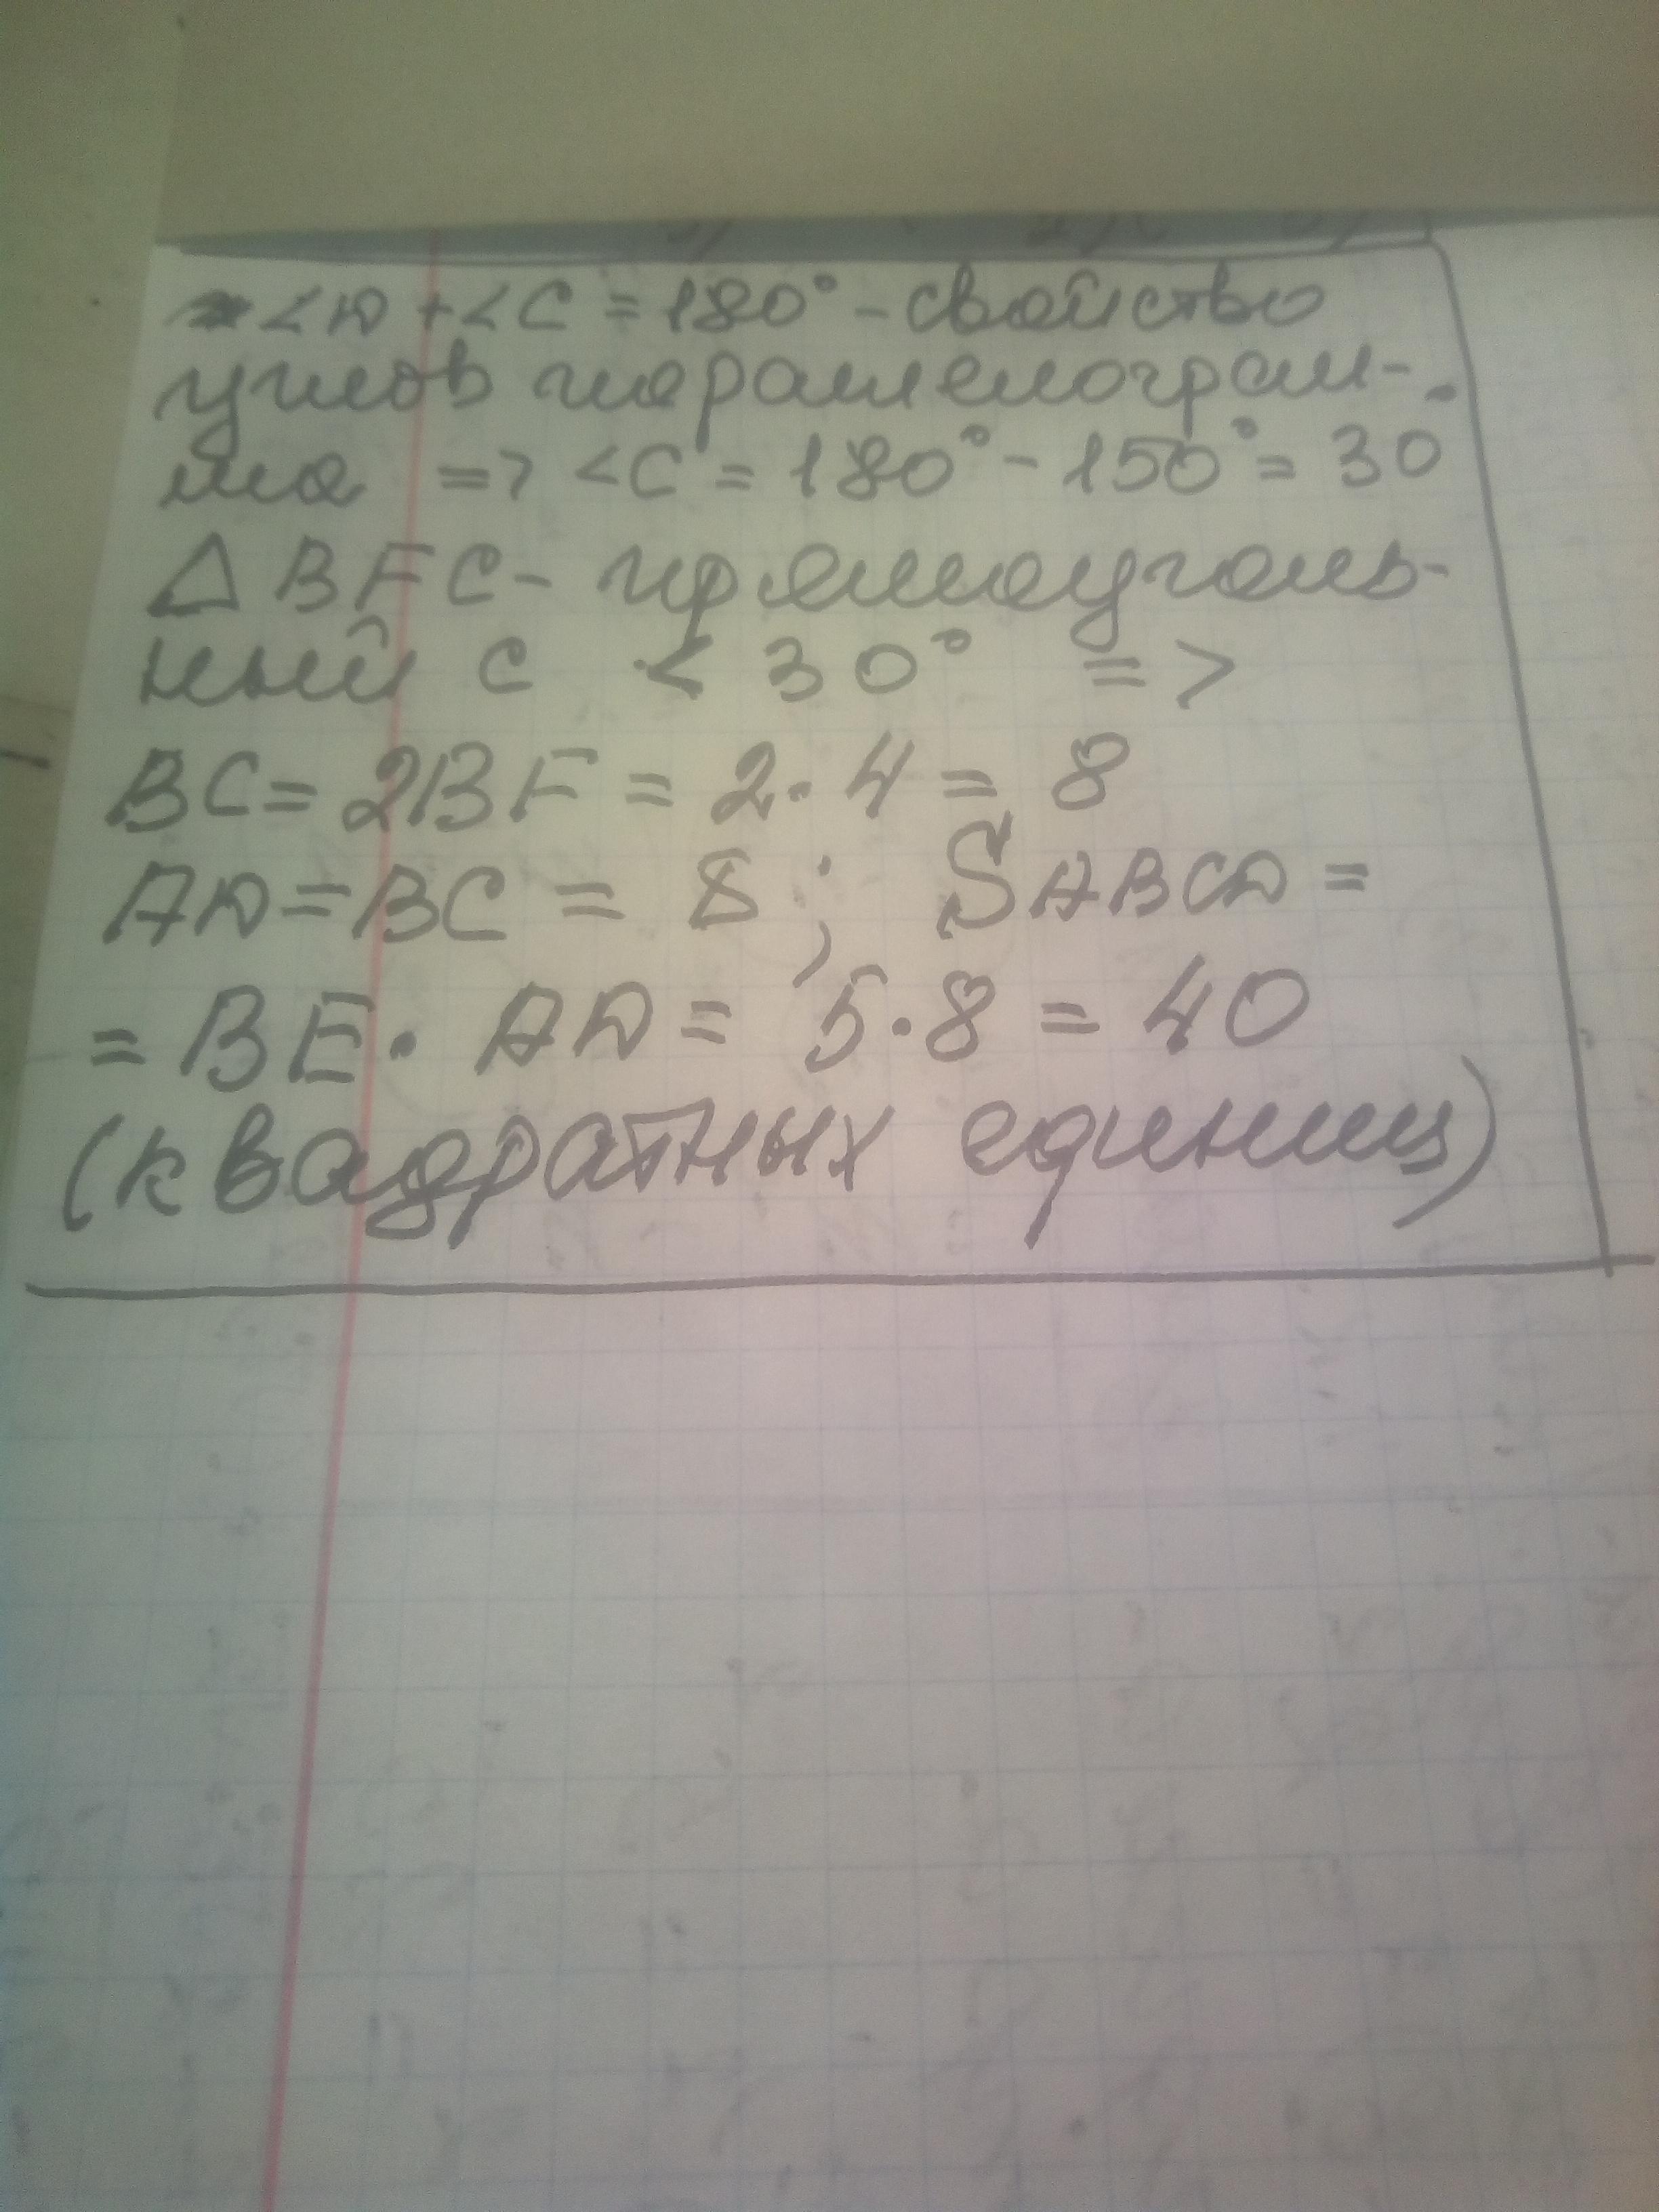 <D + <C = 180° - свойство
углов параллелограм-
ма => <C = 180° - 150° = 30°
△ BFC - прямоуголь-
ный с < 30° =>
BC = 2BF = 2 · 4 = 8
AD = BC = 8 ; SABCD =
= BE · AD = 5 · 8 = 40
(квадратных единиц)